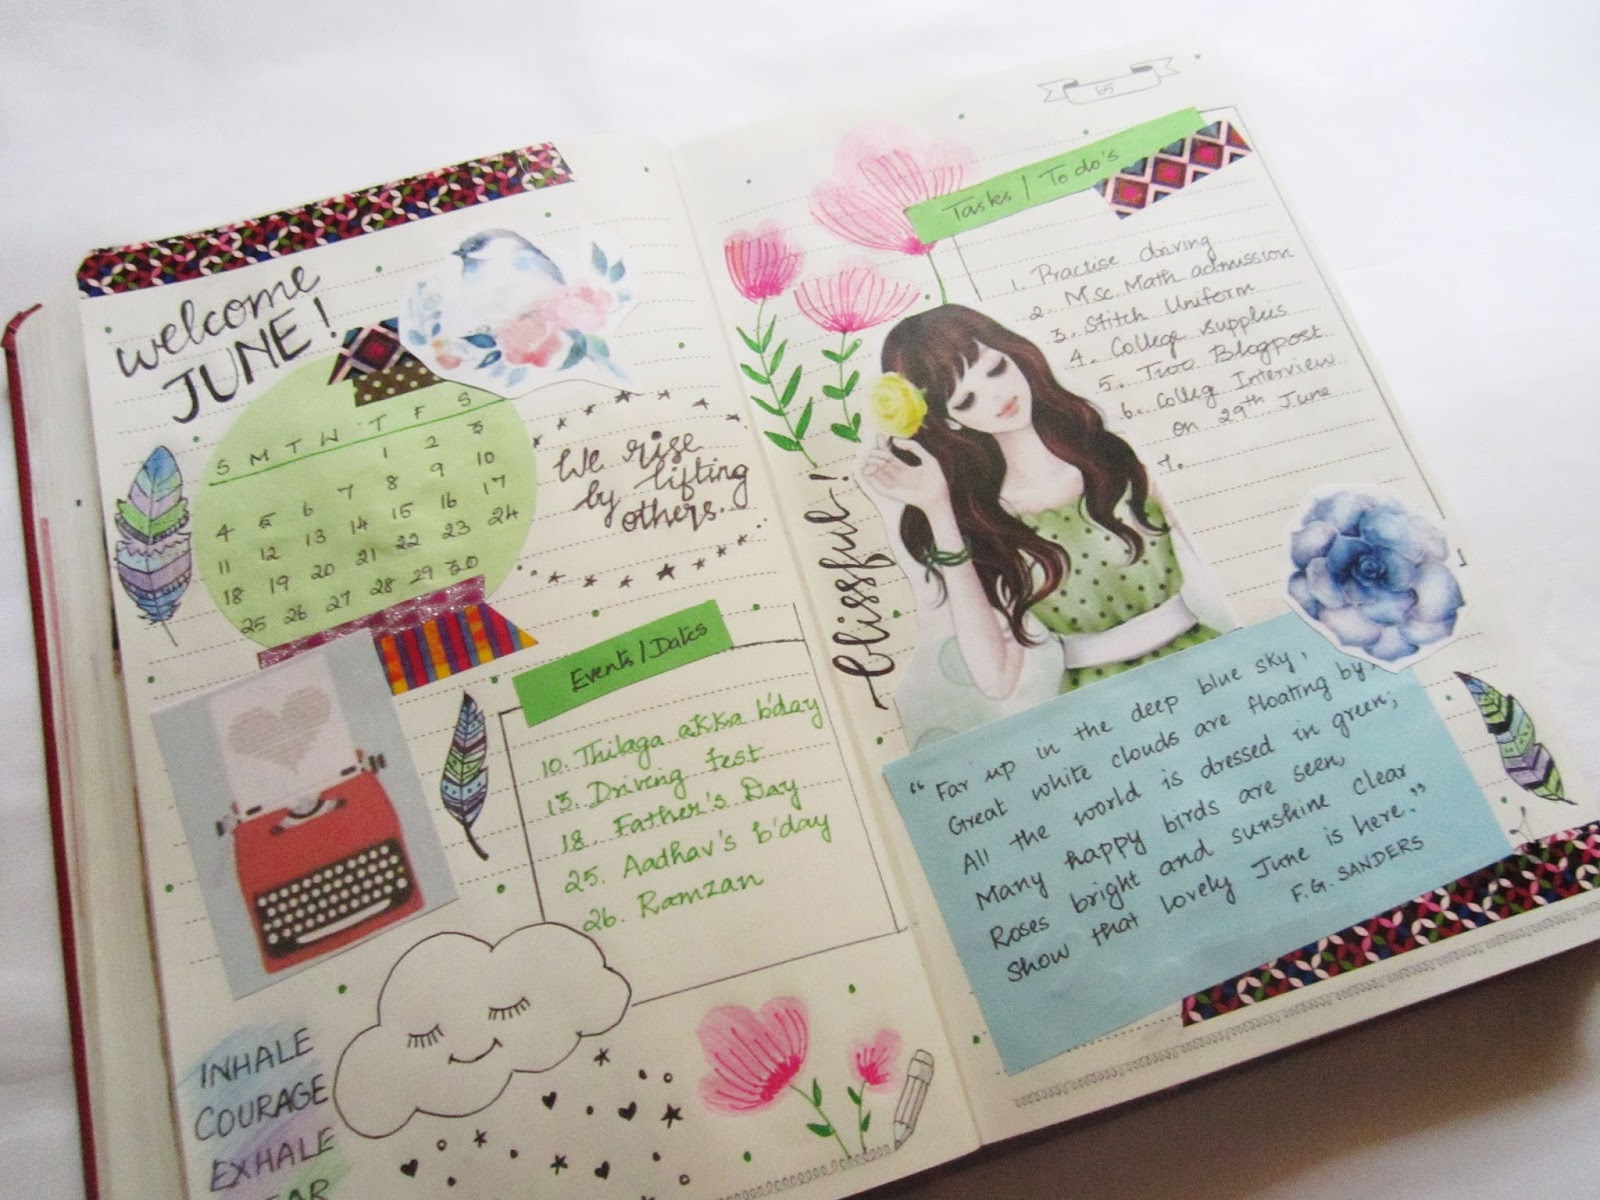 welcome
JUNE!
S M T W T F S
1 2 3
4 5 6 7 8 9 10
11 12 13 14 15 16 17
18 19 20 21 22 23 24
25 26 27 28 29 30
We rise
by lifting
others.
Events/Dates
10. Thilaga akka b'day
13. Driving Test
18. Father's Day
25. Aadhav's b'day
26. Ramzan
INHALE
COURAGE
EXHALE
65
Tasks / To do's
1. Practise driving
2. M.Sc. Math admission
3. Stitch Uniform
4. College supplies
5. Two Blogpost
6. Colleg Interview
on 29th June
7.
blissful!
"Far up in the deep blue sky,
Great white clouds are floating by;
All the world is dressed in green;
Many happy birds are seen,
Roses bright and sunshine clear
Show that lovely June is here."
F.G. SANDERS